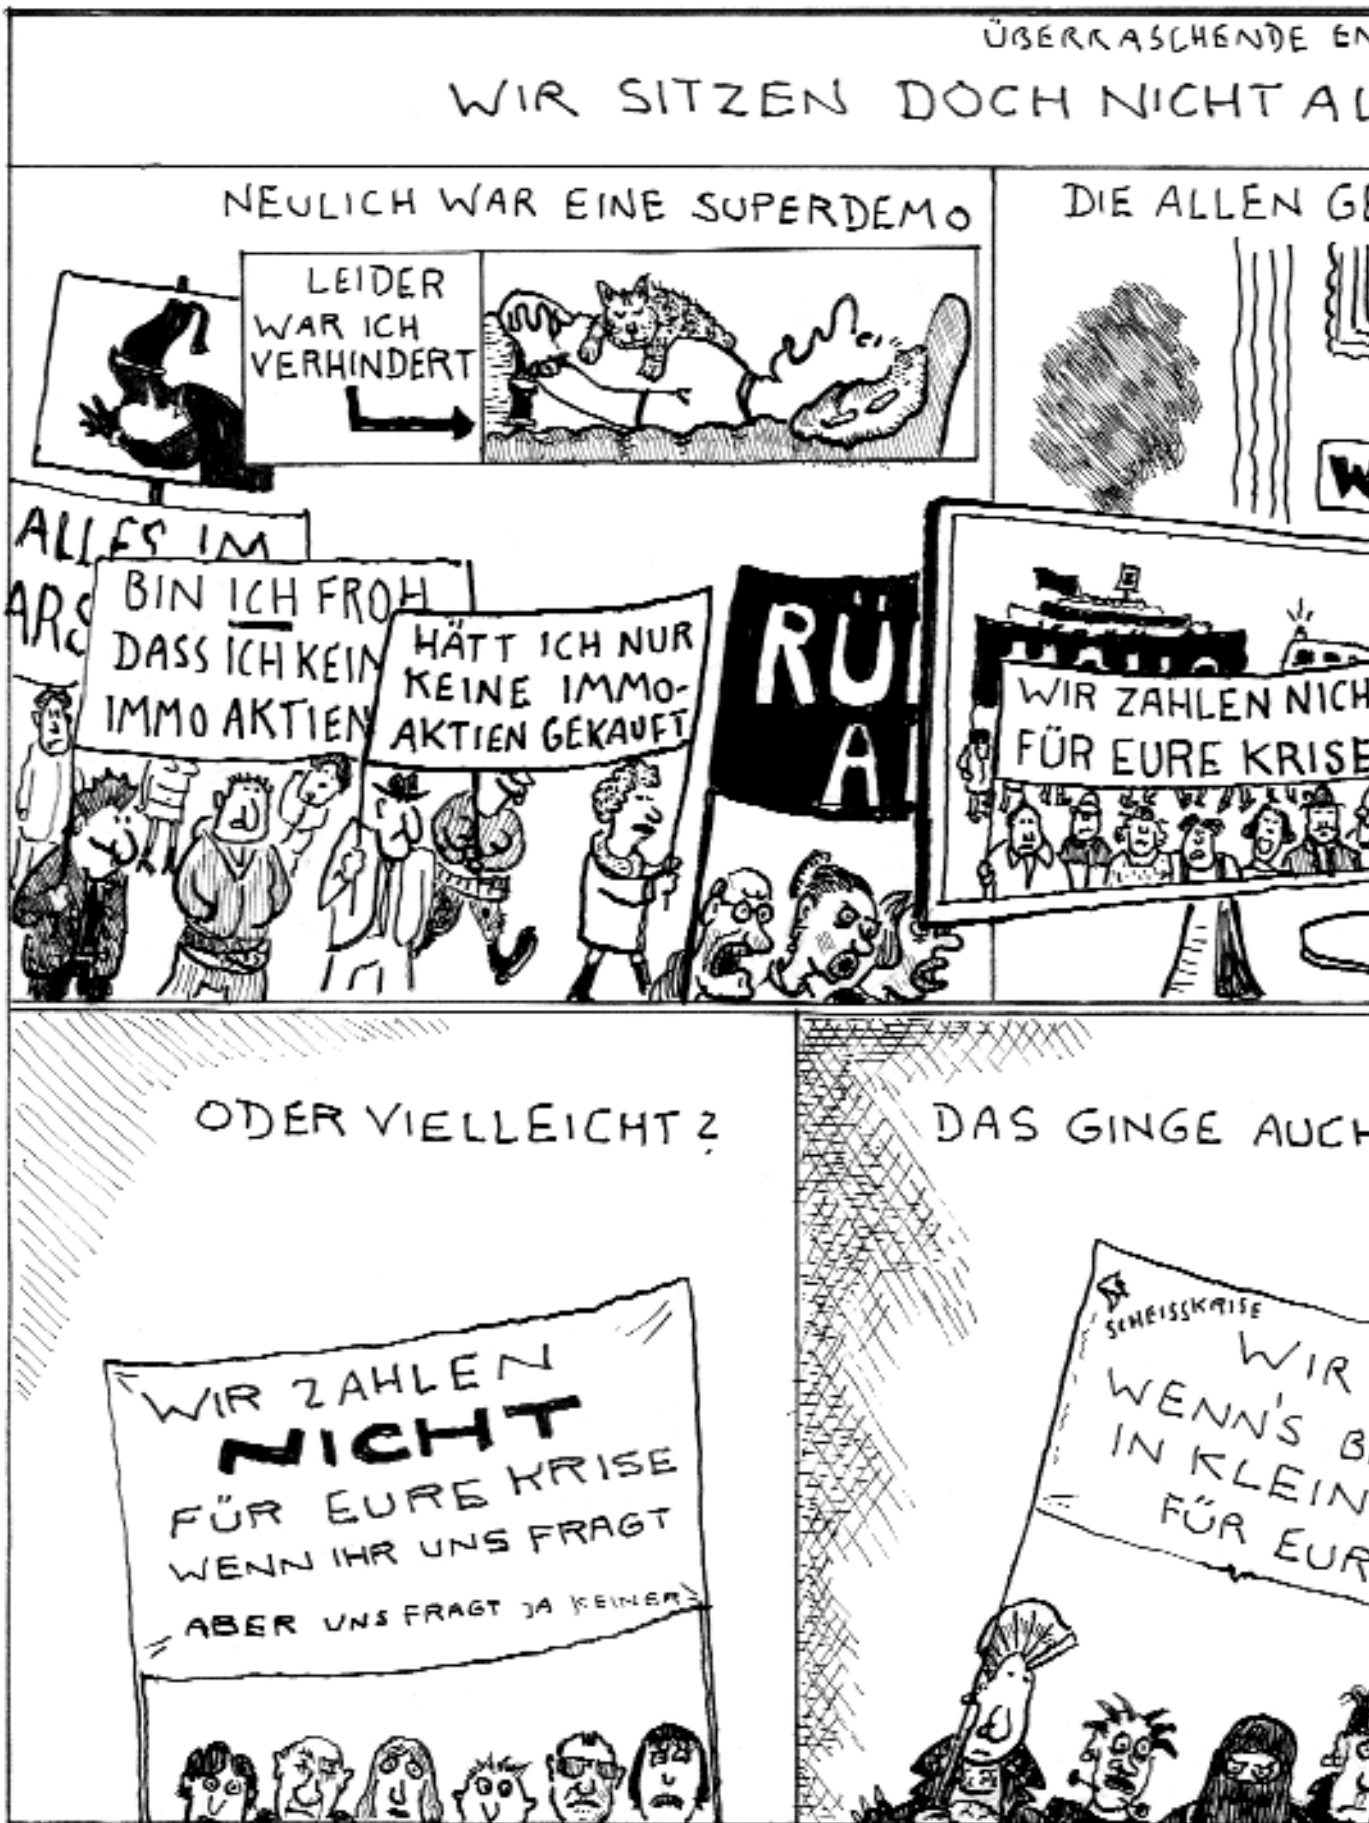 ÜBERRASCHENDE EN
WIR SITZEN DOCH NICHT AL
NEULICH WAR EINE SUPERDEMO
LEIDER
WAR ICH
VERHINDERT
ALLES IM
ARS
BIN ICH FROH
DASS ICH KEIN
IMMO AKTIEN
HÄTT ICH NUR
KEINE IMMO-
AKTIEN GEKAUFT
RÜ
A
DIE ALLEN GE
W
WIR ZAHLEN NICH
FÜR EURE KRISE
ODER VIELLEICHT?
WIR ZAHLEN
NICHT
FÜR EURE KRISE
WENN IHR UNS FRAGT
ABER UNS FRAGT JA KEINER
DAS GINGE AUCH
SCHEISSKRISE
WIR
WENN'S B
IN KLEIN
FÜR EUR